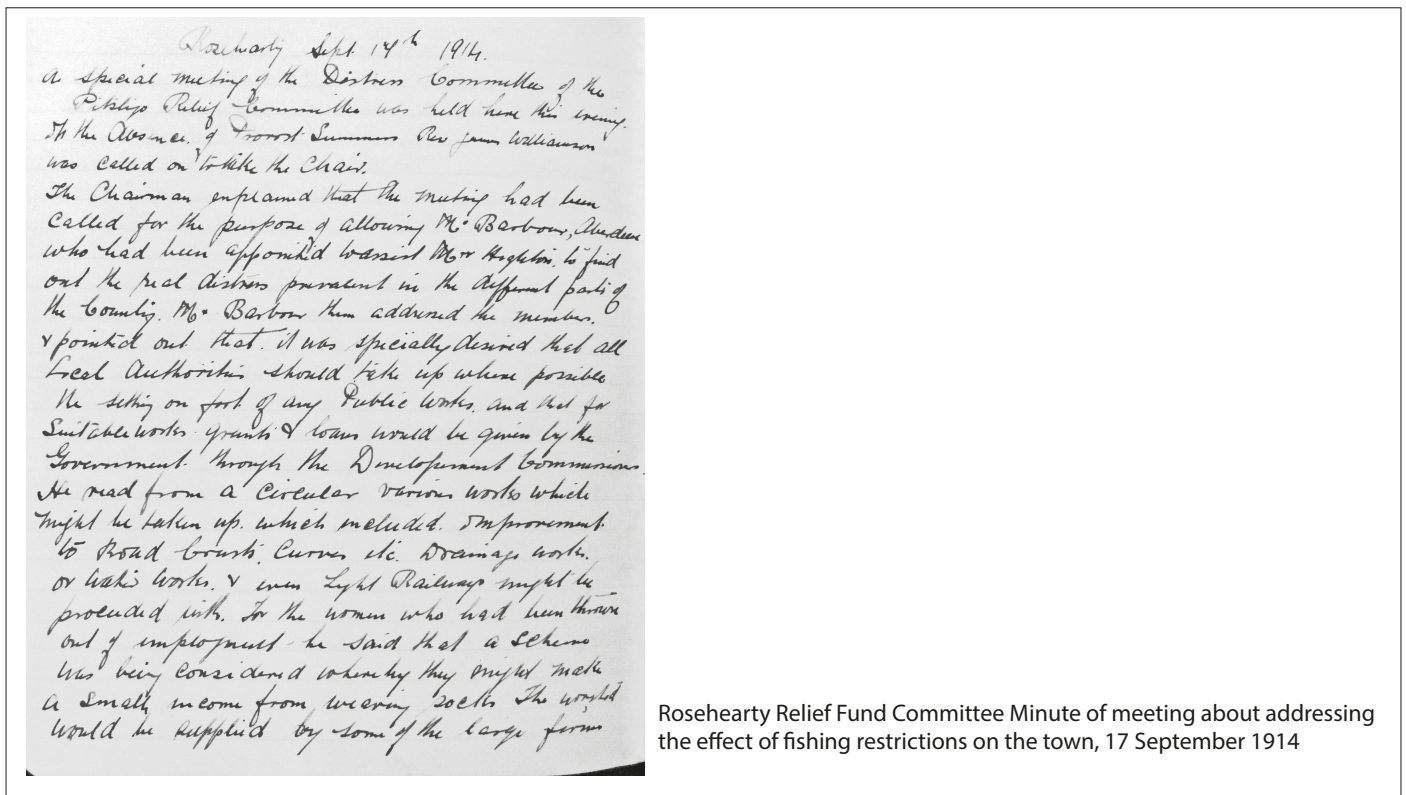 Rosehearty Sept. 17th 1914.
A special meeting of the Distress Committee of the
Pitsligo Relief Committee was held here this evening.
In the Absence of Provost Summers Rev James Williamson
was called on to take the Chair.
The Chairman explained that the meeting had been
called for the purpose of allowing Mr Barbour, Aberdeen
who had been appointed to assist Mr Hogleton, to find
out the real distress prevalent in the different parts of
the County. Mr Barbour then addressed the members.
& pointed out that it was specially desired that all
Local Authorities should take up where possible
the setting on foot of any Public Works, and that for
Suitable works grants & loans would be given by the
Government through the Developement Commissions.
He read from a Circular various works which
might be taken up which included. Improvement
to Road Crusts, Curves etc. Drainage works.
or Water Works. & even Light Railways might be
proceeded with. For the women who had been thrown
out of employment he said that a Scheme
was being considered whereby they might make
a small income from weaving socks The worsted
would be supplied by some of the large firms
Rosehearty Relief Fund Committee Minute of meeting about addressing
the effect of fishing restrictions on the town, 17 September 1914